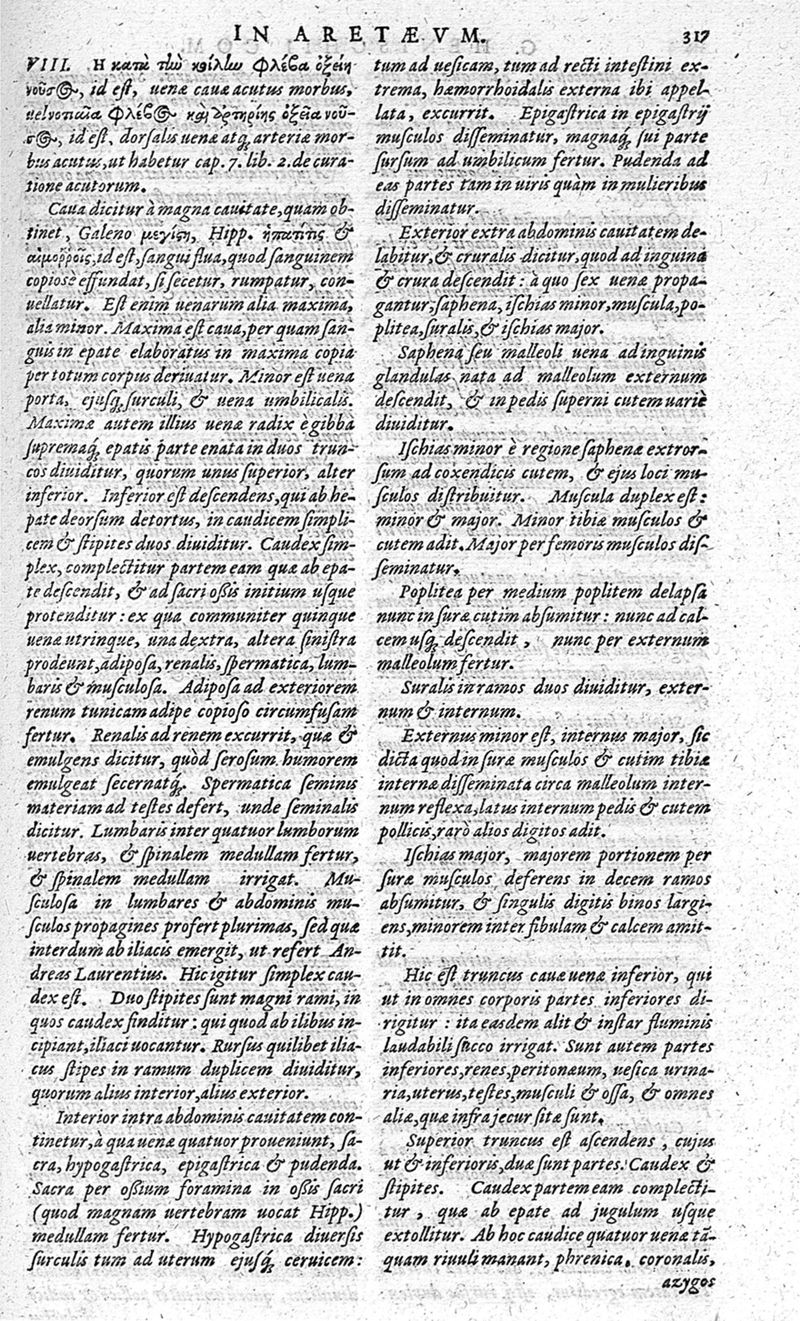 IN ARETÆVM. 317
VIII. Η κατὰ τὴν κοίλην φλέβα ὀξείη
νοῦσος, id est, uenæ cauæ acutus morbus,
φλεβὸς καὶ ἀρτηρίης ὀξεῖα νοῦ-
σος, id est, dorsalis uenæ atq; arteriæ mor-
bus acutus, ut habetur cap. 7. lib. 2. de cura-
tione acutorum.
Caua dicitur à magna cauitate, quam ob-
tinet, Galeno μεγίστη, Hipp. ἡπατῖτις &
αἱμοῤῥοῒς, id est, sanguiflua, quod sanguinem
copiosè effundat, si secetur, rumpatur, con-
uellatur. Est enim uenarum alia maxima,
alia minor. Maxima est caua, per quam san-
guis in epate elaboratus in maxima copia
per totum corpus deriuatur. Minor est uena
porta, ejusq́; surculi, & uena umbilicalis.
Maximæ autem illius uenæ radix è gibba
supremaq́; epatis parte enata in duos trun-
cos diuiditur, quorum unus superior, alter
inferior. Inferior est descendens, qui ab he-
pate deorsum detortus, in caudicem simpli-
cem & stipites duos diuiditur. Caudex sim-
plex, complectitur partem eam quæ ab epa-
te descendit, & ad sacri oßis initium usque
protenditur: ex qua communiter quinque
uenæ utrinque, una dextra, altera sinistra
prodeunt, adiposa, renalis, spermatica, lum-
baris & musculosa. Adiposa ad exteriorem
renum tunicam adipe copioso circumfusam
fertur. Renalis ad renem excurrit, quæ &
emulgens dicitur, quòd serosum humorem
emulgeat secernatq́;. Spermatica seminis
materiam ad testes defert, unde seminalis
dicitur. Lumbaris inter quatuor lumborum
uertebras, & spinalem medullam fertur,
& spinalem medullam irrigat. Mu-
sculosa in lumbares & abdominis mu-
sculos propagines profert plurimas, sed quæ
interdum ab iliacis emergit, ut refert An-
dreas Laurentius. Hic igitur simplex cau-
dex est. Duo stipites sunt magni rami, in
quos caudex finditur: qui quod ab ilibus in-
cipiant, iliaci uocantur. Rursus quilibet ilia-
cus stipes in ramum duplicem diuiditur,
quorum alius interior, alius exterior.
Interior intra abdominis cauitatem con-
tinetur, à qua uenæ quatuor proueniunt, sa-
cra, hypogastrica, epigastrica & pudenda.
Sacra per oßium foramina in oßis sacri
(quod magnam uertebram uocat Hipp.)
medullam fertur. Hypogastrica diuersis
surculis tum ad uterum ejusq́; ceruicem:
tum ad uesicam, tum ad recti intestini ex-
trema, hæmorrhoidalis externa ibi appel-
lata, excurrit. Epigastrica in epigastrij
musculos disseminatur, magnaq́; sui parte
sursum ad umbilicum fertur. Pudenda ad
eas partes tam in uiris quàm in mulieribus
disseminatur.
Exterior extra abdominis cauitatem de-
labitur, & cruralis dicitur, quod ad inguina
& crura descendit: à quo sex uenæ propa-
gantur, saphena, ischias minor, muscula, po-
plitea, suralis, & ischias major.
Saphena seu malleoli uena ad inguinis
glandulas nata ad malleolum externum
descendit, & in pedis superni cutem uariè
diuiditur.
Ischias minor è regione saphenæ extror-
sum ad coxendicis cutem, & ejus loci mu-
sculos distribuitur. Muscula duplex est:
minor & major. Minor tibiæ musculos &
cutem adit. Major per femoris musculos dis-
seminatur.
Poplitea per medium poplitem delapsa
nunc in suræ cutim absumitur: nunc ad cal-
cem usq́; descendit, nunc per externum
malleolum fertur.
Suralis in ramos duos diuiditur, exter-
num & internum.
Externus minor est, internus major, sic
dicta quod in suræ musculos & cutim tibiæ
internæ disseminata circa malleolum inter-
num reflexa, latus internum pedis & cutem
pollicis, rarò alios digitos adit.
Ischias major, majorem portionem per
suræ musculos deferens in decem ramos
absumitur, & singulis digitis binos largi-
ens, minorem inter fibulam & calcem amit-
tit.
Hic est truncus cauæ uenæ inferior, qui
ut in omnes corporis partes inferiores di-
rigitur: ita easdem alit & instar fluminis
laudabili succo irrigat. Sunt autem partes
inferiores, renes, peritonæum, uesica urina-
ria, uterus, testes, musculi & ossa, & omnes
aliæ, quæ infra jecur sitæ sunt.
Superior truncus est ascendens, cujus
ut & inferioris, duæ sunt partes. Caudex &
stipites. Caudex partem eam complecti-
tur, quæ ab epate ad jugulum usque
extollitur. Ab hoc caudice quatuor uenæ tā-
quam riuuli manant, phrenica, coronalis,
azygos